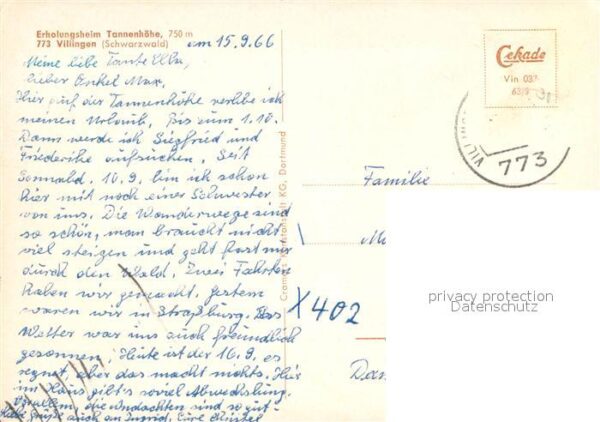 Erholungsheim Tannenhöhe, 750 m
773 Villingen (Schwarzwald)
am 15.9.66
Meine liebe Tante Ella,
lieber Onkel Max,
Hier auf der Tannenhöhe verlebe ich
meinen Urlaub, bis zum 1.10.
Dann werde ich Siegfried und
Friederike aufsuchen. Seit
Sonnabd. 10.9. bin ich schon
hier mit noch einer Schwester
von uns. Die Wanderwege sind
so schön, man braucht nicht
viel steigen und geht fast nur
durch den Wald. Zwei Fahrten
haben wir gemacht. Gestern
waren wir in Straßburg. Das
Wetter war uns auch freundlich
gesonnen. Heute ist der 16.9. es
regnet, aber das macht nichts. Hier
im Haus gibt's soviel Abwechslung.
Vorallem, die Andachten sind so gut.
Habe Grüße auch an Ingrid. Eure Christel
Cramers Kunstanstalt KG, Dortmund
Cekade
Vin 037
63/9
VILLIN
773
Familie
X402
privacy protection
Datenschutz